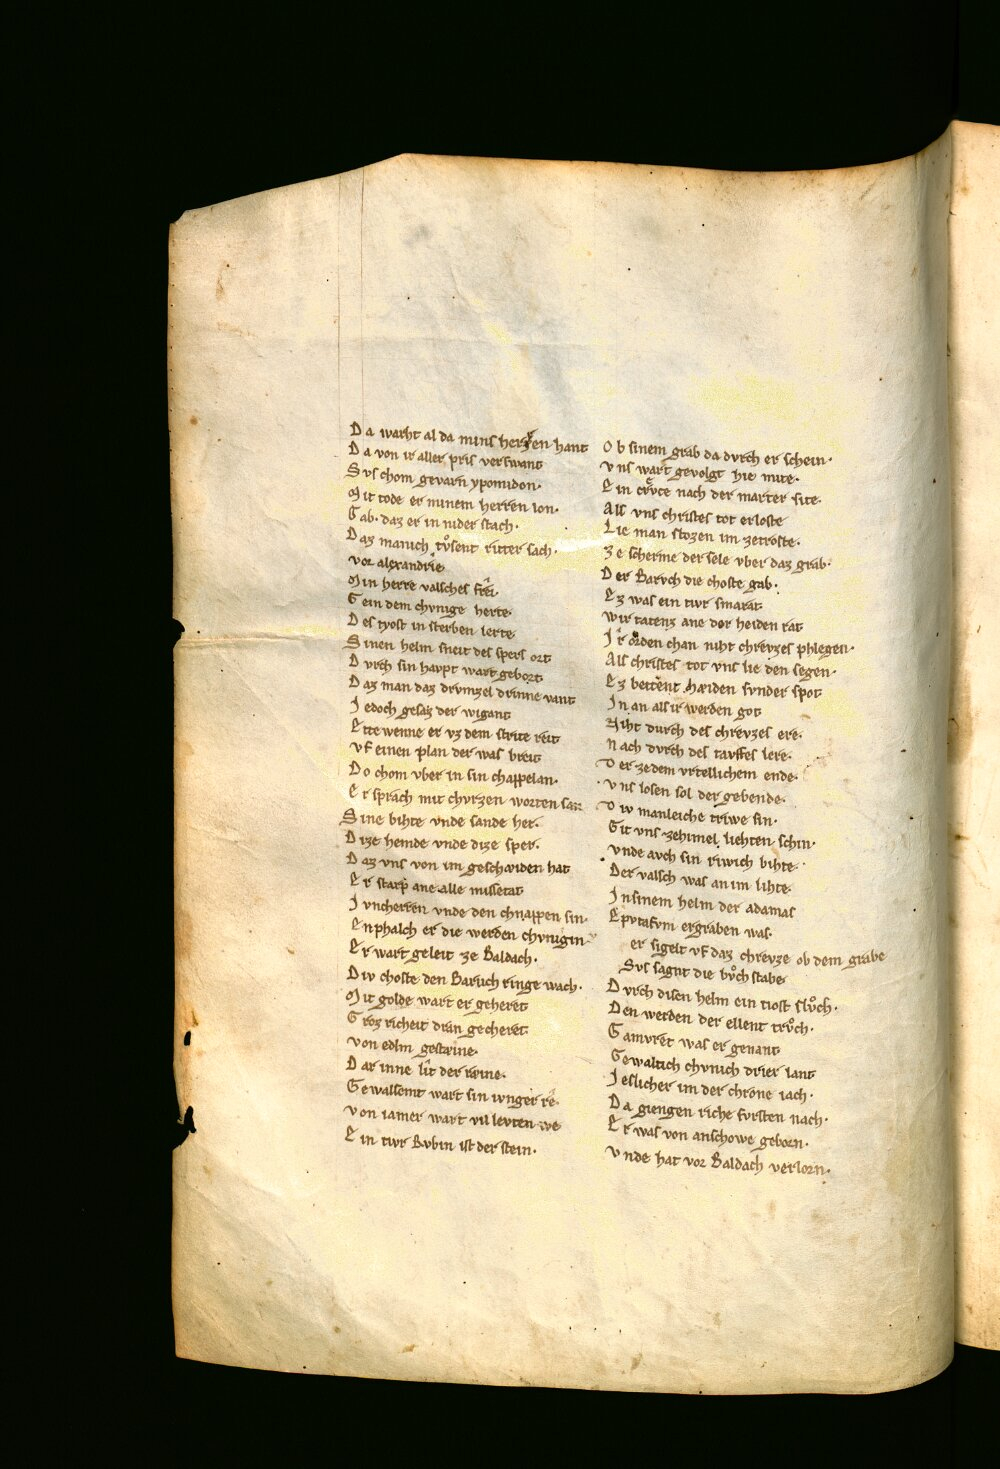 Da warht al da mins herzen hant
Da von ir aller pris verswant
Svs chom gevarn ypomidon·
Mit tode er minem herren lon·
Gab· daz er in nider stach·
Daz manich tvͦsent ritter sach·
vor alexandrie
Min herre valsches frêi
Gein dem chvnige herte·
Des tyost in sterben lerte
Sinen helm sneit des spers ort
Dvrch sin havpt wart gebort
Daz man daz drvmzel drinne vant
Iedoch gesaz der wigant
Ettewenne er vz dem strite reit
vf einen plan der was breit
Do chom vber in sin chappelan·
Er sprach mit chvrzen worten san
Sine bihte vnde sande her·
Dize hemde vnde dize sper·
Daz vns von im gescheiden hat
Er starp ane alle missetat
Ivncherren vnde den chnappen sin·
Enphalch er die werden chvnigin
Er wart geleit ze Baldach·
Div choste den Baruch ringe wach·
Mit golde wart er geheret
Groz richeit dran gecheret·
von edlm gesteine·
Dar inne lît der reine·
Gewalsemt wart sin ivnger rê·
von iamer wart vil levten we
Ein tivr Rvbin ist der stein·
Ob sinem grab da dvrch er schein·
vns wart gevolgt hie mite·
Ein crvͤce nach der marter site·
Als vns christes tot erloste
Lie man stozen im zetroste·
Ze scherme der sele vber daz grab·
Der Barvch die choste gab·
Ez was ein tivr smarat
wir tatenz ane der heiden rat
Ir orden chan niht chrevzes phlegen·
Als christes tot vns lie den segen·
Ez bettent heiden svnder spot
In an als ir werden got
Niht durch des chrevzes ere·
Nach dvrch des tavffes lere·
Der zedem vrteilichem ende·
vns losen sol der gebende·
Div manleiche triwe sin·
Git vns zehimel liehten schin·
vnde avch sin riwich bihte·
Der valsch was an im lihte·
In sinem helm der adamas
Epytafvm ergraben was·
er sigelt vf daz chrevze ob dem grabe
Svs sagnt die bvͦchstabe
Dvrch disen helm ein tiost slvͦch·
Den werden der ellent trvͦch·
Gamvret was er genant
Gewaltich chvnich drier lant
Ieslicher im der chrone iach·
Da giengen riche fvrsten nach·
Er was von anschowe geborn·
vnde hat vor Baldach verlorn·